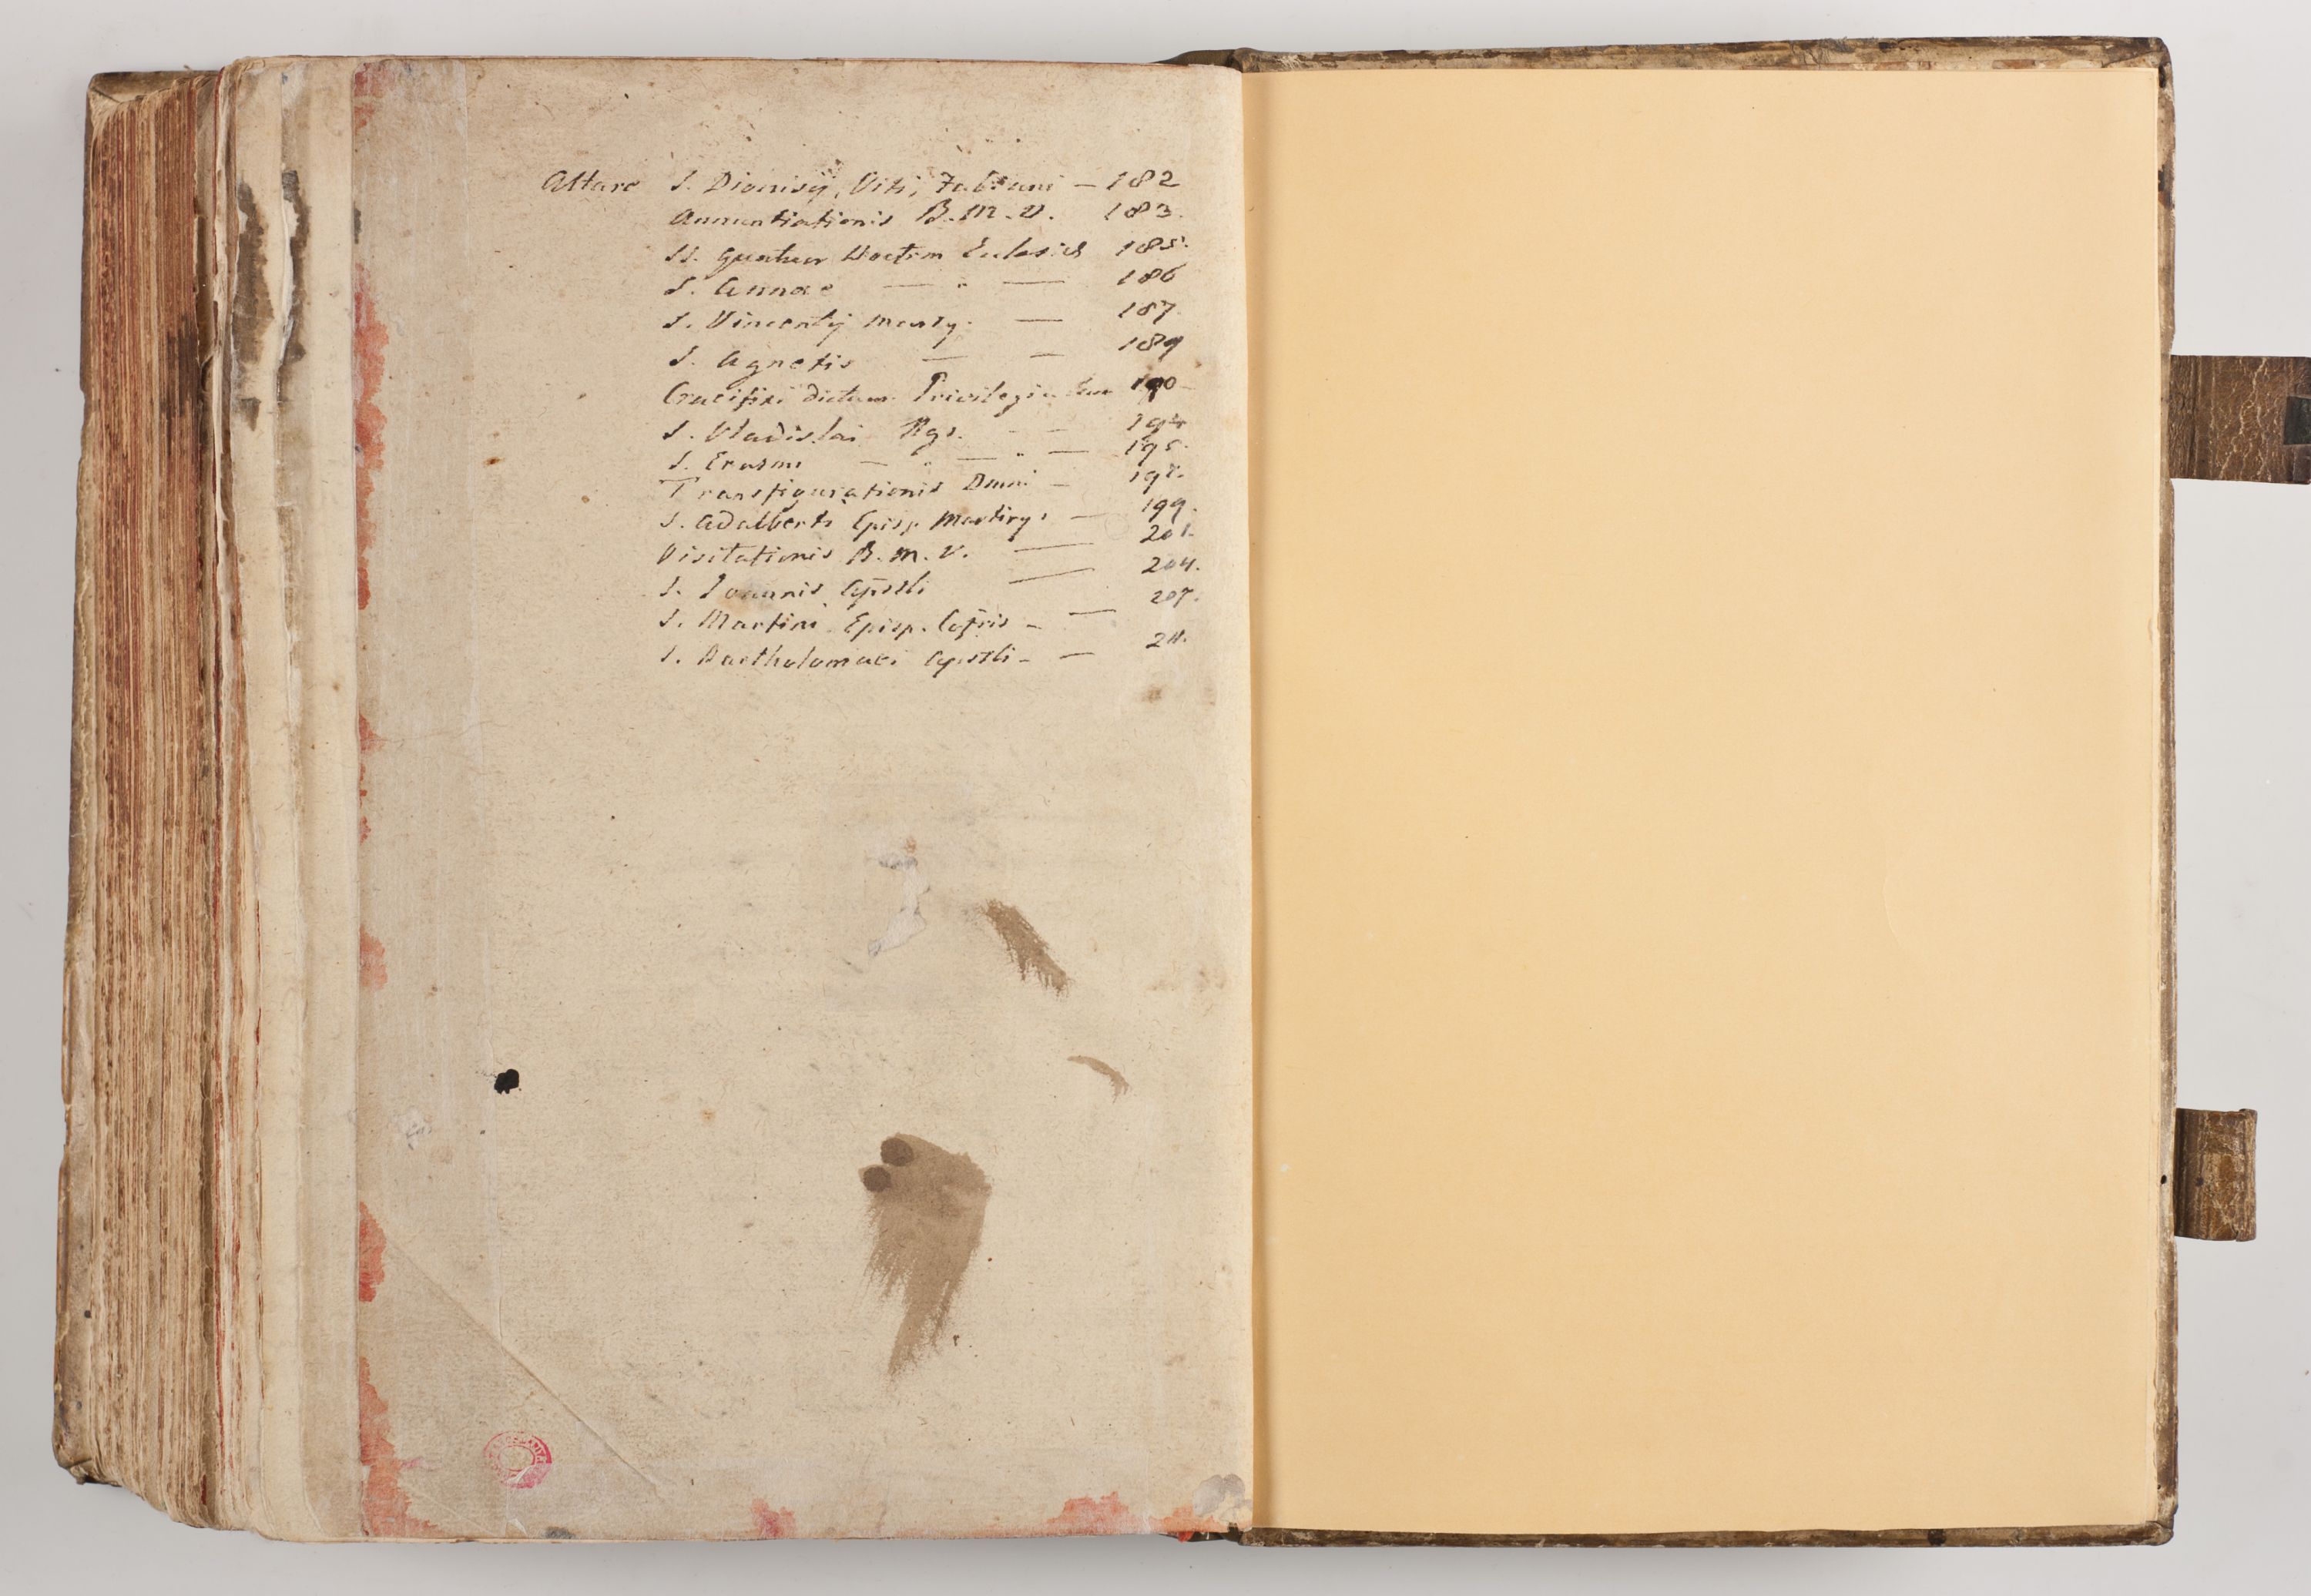 Altare S. Dionisij, Viti, Fabiani — 182
Annuntiationis B. M. V. 183.
SS. quatuor Doctm Eclesiæ 185.
S. Annae — " — 186
S. Vincentij Marty. — 187
S. Agnetis — — 189
Crucifixi dictum 190
S. Vladislai Rgs. — — 194
S. Erasmi — " — " — 195.
Transfigurationis Dmni —
S. Adalberti Episp. Martirys — 199.
Visitationis B. M. V. — 201.
S. Joannis Apostli — 204.
S. Martini Episp. Cofris — — 207.
S. Bartholomaei Apostli — — 211.